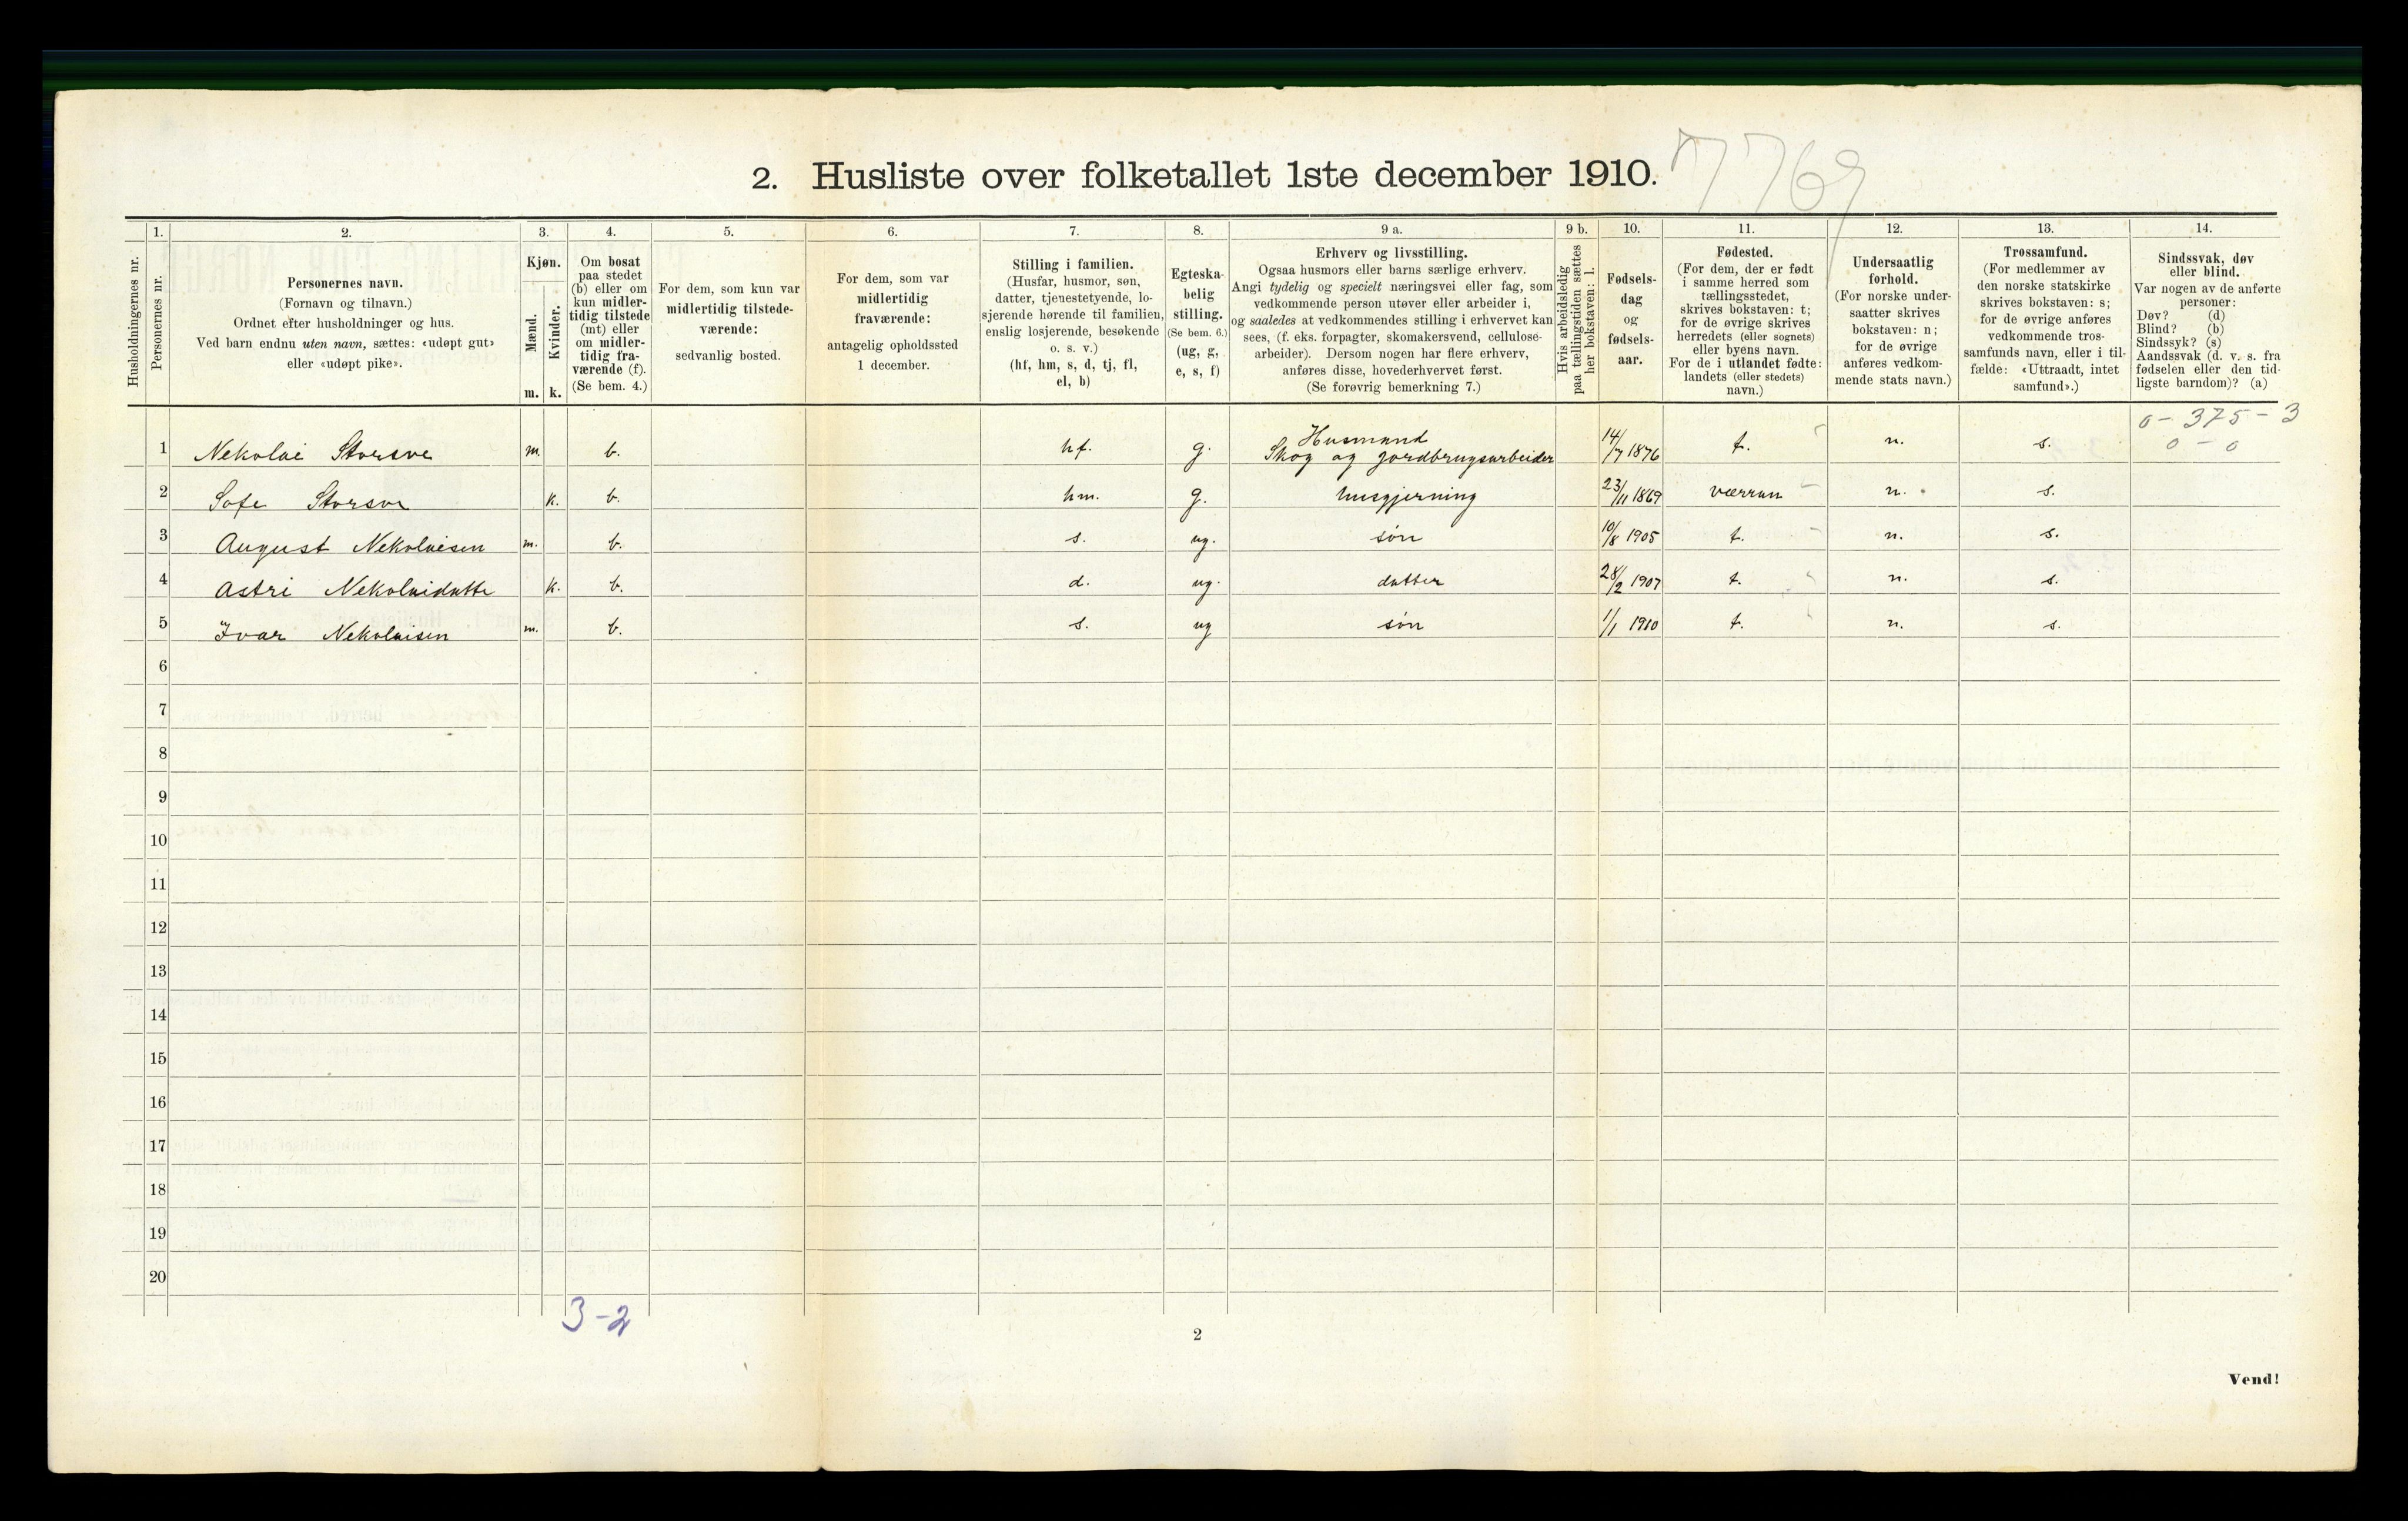 2. Husliste over folketallet 1ste december 1910.
7769
Husholdningernes nr.
1.
Personernes nr.
2.
Personernes navn.
(Fornavn og tilnavn.)
Ordnet efter husholdninger og hus.
Ved barn endnu uten navn, sættes: «udøpt gut»
eller «udøpt pike».
3.
Kjøn.
Mænd.
Kvinder.
m. k.
4.
Om bosat
paa stedet
(b) eller om
kun midler-
tidig tilstede
(mt) eller
om midler-
tidig fra-
værende (f).
(Se bem. 4.)
5.
For dem, som kun var
midlertidig tilstede-
værende:
sedvanlig bosted.
6.
For dem, som var
midlertidig
fraværende:
antagelig opholdssted
1 december.
7.
Stilling i familien.
(Husfar, husmor, søn,
datter, tjenestetyende, lo-
sjerende hørende til familien,
enslig losjerende, besøkende
o. s. v.)
(hf, hm, s, d, tj, fl,
el, b)
8.
Egteska-
belig
stilling.
(Se bem. 6.)
(ug, g,
e, s, f)
9 a.
Erhverv og livsstilling.
Ogsaa husmors eller barns særlige erhverv.
Angi tydelig og specielt næringsvei eller fag, som
vedkommende person utøver eller arbeider i,
og saaledes at vedkommendes stilling i erhvervet kan
sees, (f. eks. forpagter, skomakersvend, cellulose-
arbeider). Dersom nogen har flere erhverv,
anføres disse, hovederhvervet først.
(Se forøvrig bemerkning 7.)
9 b.
Hvis arbeidsledig
paa tællingstiden sættes
her bokstaven: l.
10.
Fødsels-
dag
og
fødsels-
aar.
11.
Fødested.
(For dem, der er født
i samme herred som
tællingsstedet,
skrives bokstaven: t;
for de øvrige skrives
herredets (eller sognets)
eller byens navn.
For de i utlandet fødte:
landets (eller stedets)
navn.)
12.
Undersaatlig
forhold.
(For norske under-
saatter skrives
bokstaven: n;
for de øvrige
anføres vedkom-
mende stats navn.)
13.
Trossamfund.
(For medlemmer av
den norske statskirke
skrives bokstaven: s;
for de øvrige anføres
vedkommende tros-
samfunds navn, eller i til-
fælde: «Uttraadt, intet
samfund».)
14.
Sindssvak, døv
eller blind.
Var nogen av de anførte
personer:
Døv? (d)
Blind? (b)
Sindssyk? (s)
Aandssvak (d. v. s. fra
fødselen eller den tid-
ligste barndom)? (a)
0 - 375 - 3
0 - 0
1 Nekolai Storsve m. b. hf. g. Husmand Skog og jordbrugsarbeider 14/7 1876 t. n. s.
2 Sofe Storsve k. b. hm. g. husgjerning 23/11 1869 værran n. s.
3 August Nekolaisen m. b. s. ug. søn 10/8 1905 t. n. s.
4 Astri Nekolaidatte k. b. d. ug. datter 28/2 1907 t. n. s.
5 Ivar Nekolaisen m. b. s. ug søn 1/1 1910 t. n. s.
6
7
8
9
10
11
12
13
14
15
16
17
18
19
20
3-2
2
Vend!